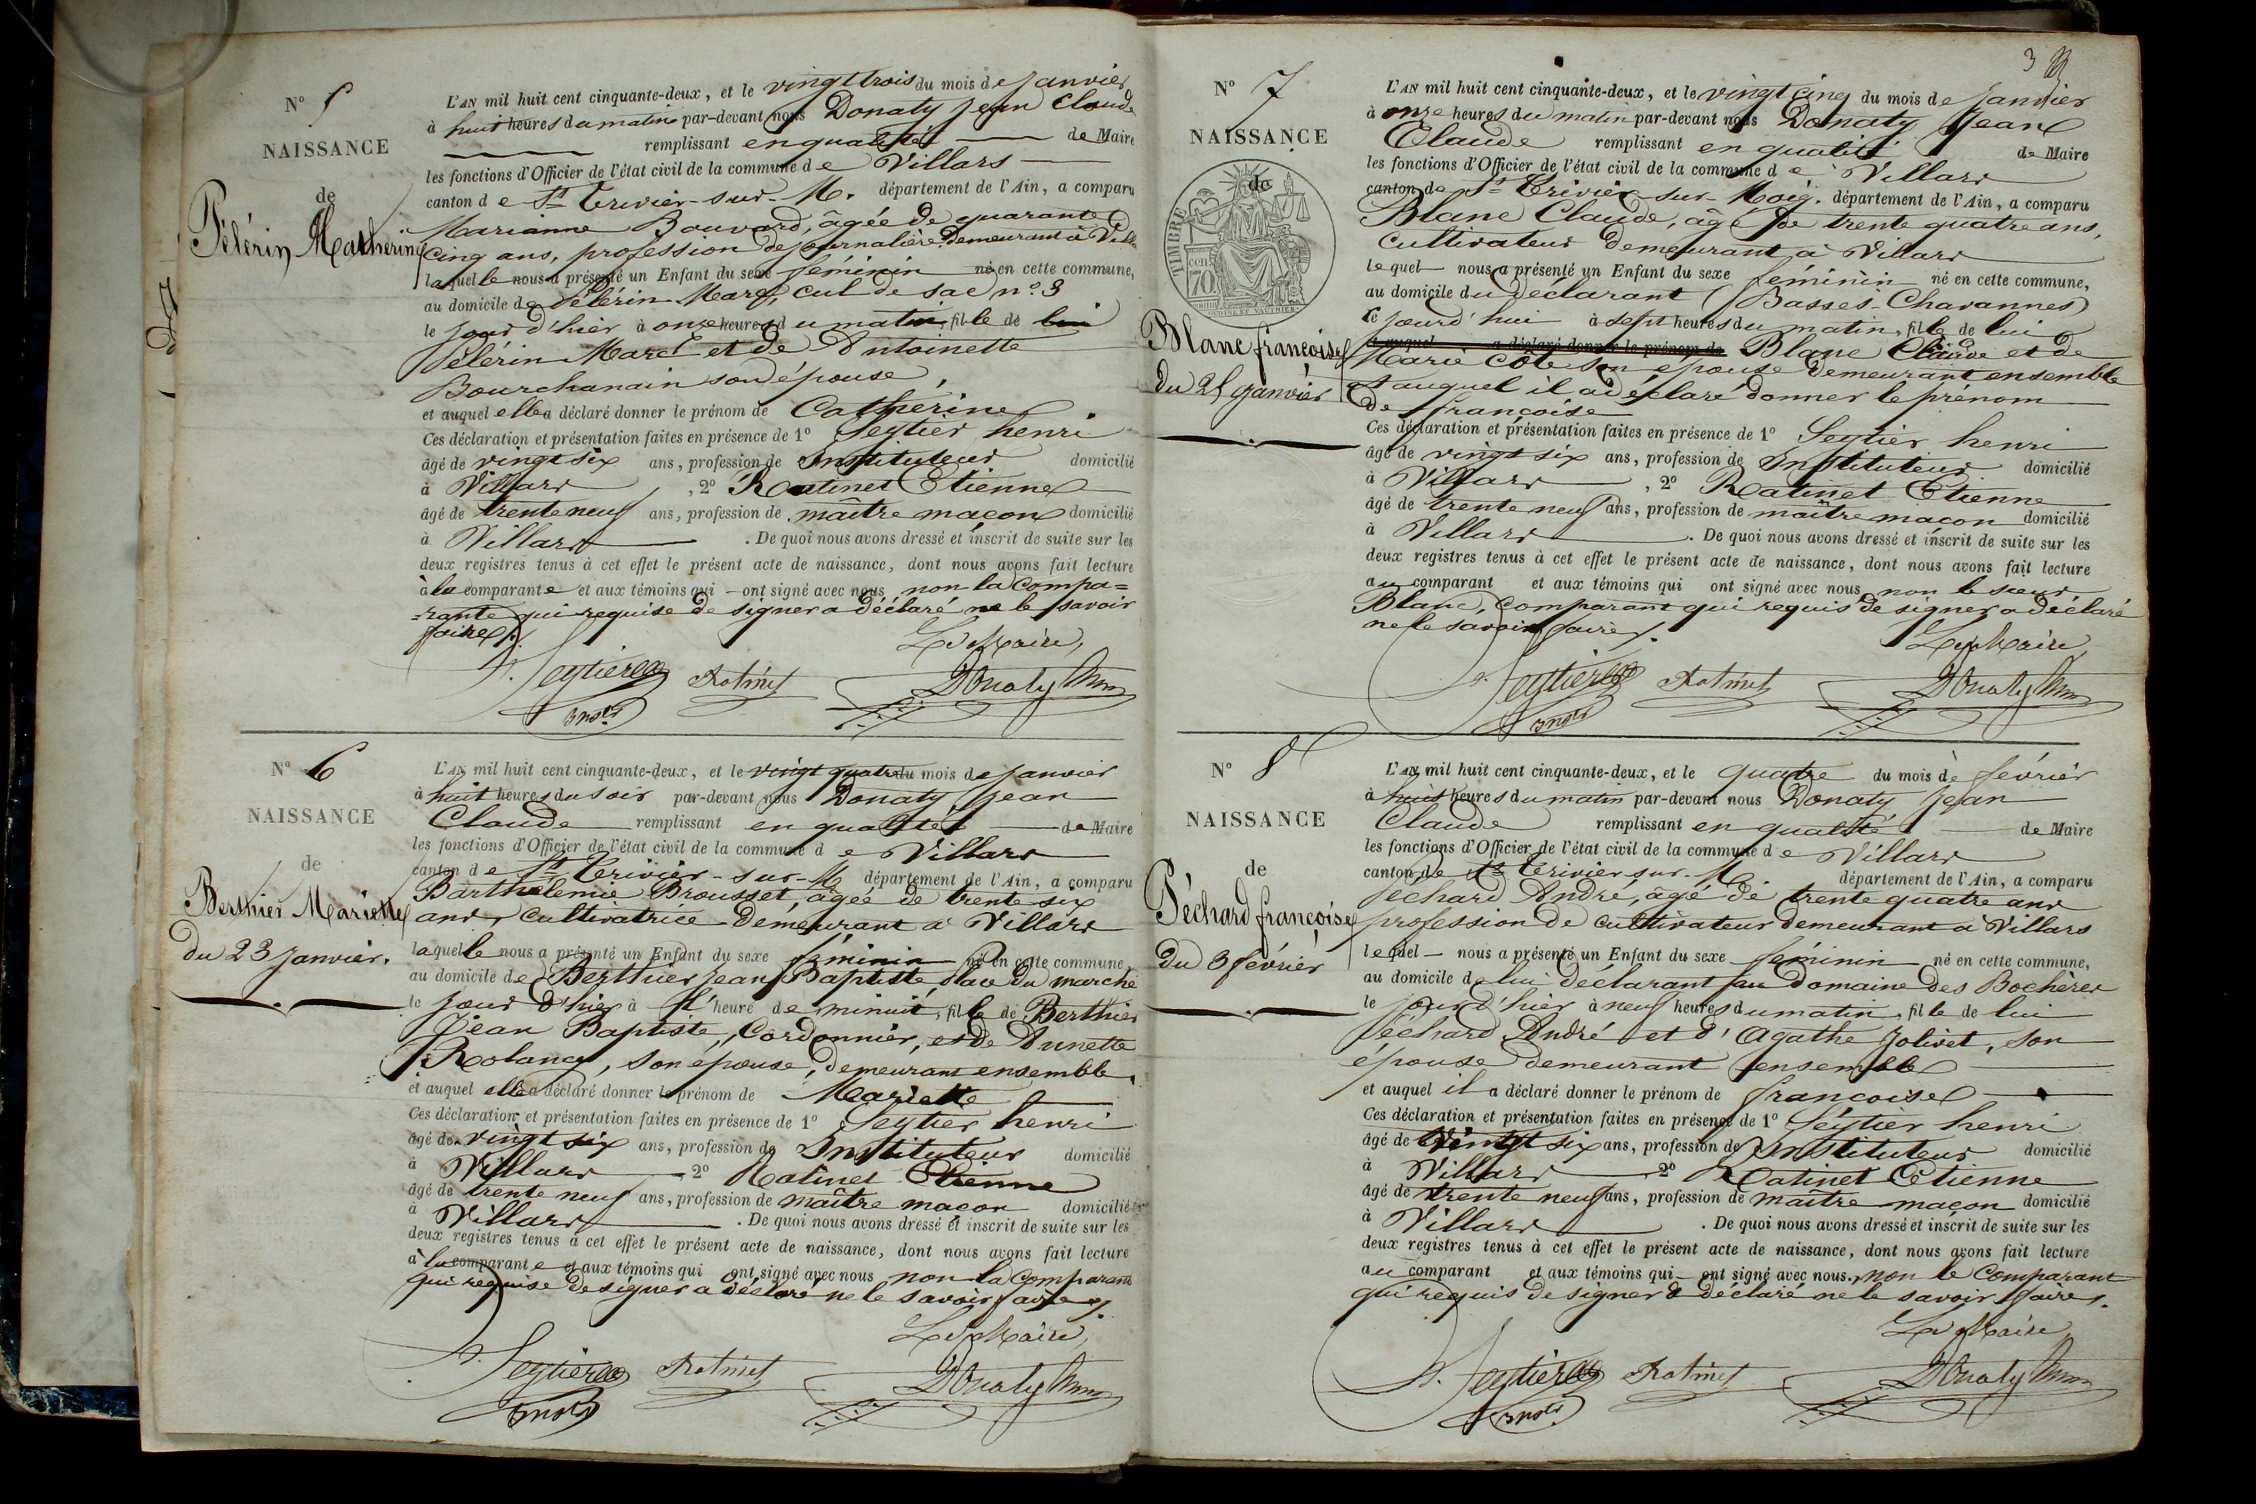 N° 5
NAISSANCE
de
Pélérin Catherine
L'AN mil huit cent cinquante-deux, et le vingt trois du mois de janvier
à huit heures du matin par-devant nous Donaty Jean Claude
remplissant en qualité de Maire
les fonctions d'Officier de l'état civil de la commune de Villars
canton de St Trivier-sur-M. département de l'Ain, a comparu
Marianne Bouvard, âgée de quarante
cinq ans, profession de journalière demeurant à Villars
laquelle nous a présenté un Enfant du sexe féminin né en cette commune,
au domicile de Pélérin Marc, cul de sac n° 3
le jour d'hier à onze heures du matin, fille de lui
Pélérin Marc et de Antoinette
Bourchanain son épouse,
et auquel elle a déclaré donner le prénom de Catherine
Ces déclaration et présentation faites en présence de 1° Seytier henri
âgé de vingt six ans, profession de Instituteur domicilié
à Villars, 2° Ratinet Etienne
âgé de trente neuf ans, profession de maître maçon domicilié
à Villars. De quoi nous avons dressé et inscrit de suite sur les
deux registres tenus à cet effet le présent acte de naissance, dont nous avons fait lecture
à la comparante et aux témoins qui ont signé avec nous non la compa=
=rante qui requise de signer a déclaré ne le savoir
faire.
Le Maire,
Seytier Ratinet Donaty
N° 6
NAISSANCE
de
Berthier Mariette
du 23 janvier.
L'AN mil huit cent cinquante-deux, et le vingt quatre du mois de janvier
à huit heures du soir par-devant nous Donaty Jean
Claude remplissant en qualité de Maire
les fonctions d'Officier de l'état civil de la commune de Villars
canton de St Trivier-sur-M département de l'Ain, a comparu
Barthelemie Brousset, âgée de trente six
ans, cultivatrice demeurant à Villars
laquelle nous a présenté un Enfant du sexe féminin né en cette commune,
au domicile de Berthier Jean Baptiste place du marché
le jour d'hier à l'heure de minuit, fille de Berthier
Jean Baptiste, Cordonnier, et de Annette
Rolancy, son épouse, demeurant ensemble.
et auquel elle a déclaré donner le prénom de Mariette
Ces déclaration et présentation faites en présence de 1° Seytier henri
âgé de vingt six ans, profession de Instituteur domicilié
à Villars 2° Ratinet Etienne
âgé de trente neuf ans, profession de maître maçon domicilié
à Villars. De quoi nous avons dressé et inscrit de suite sur les
deux registres tenus à cet effet le présent acte de naissance, dont nous avons fait lecture
à la comparante et aux témoins qui ont signé avec nous non la comparante
qui requise de signer a déclaré ne le savoir faire.
Le Maire,
Seytier Ratinet Donaty
3
N° 7
NAISSANCE
de
TIMBRE
70 cen
Blanc françoise
du 25 janvier
L'AN mil huit cent cinquante-deux, et le vingt cinq du mois de janvier
à onze heures du matin par-devant nous Donaty Jean
Claude remplissant en qualité de Maire
les fonctions d'Officier de l'état civil de la commune de Villars
canton de St Trivier-sur-Moig. département de l'Ain, a comparu
Blanc Claude, âgé de trente quatre ans,
cultivateur demeurant à Villars
lequel nous a présenté un Enfant du sexe féminin né en cette commune,
au domicile du déclarant (Basses Chavannes)
ce jourd'hui à sept heures du matin, fille de lui
et auquel a déclaré donner le prénom de Blanc Claude et de
Marie Côte son épouse demeurant ensemble
et auquel il a déclaré donner le prénom
de françoise
Ces déclaration et présentation faites en présence de 1° Seytier henri
âgé de vingt six ans, profession de Instituteur domicilié
à Villars, 2° Ratinet Etienne
âgé de trente neuf ans, profession de maître maçon domicilié
à Villars. De quoi nous avons dressé et inscrit de suite sur les
deux registres tenus à cet effet le présent acte de naissance, dont nous avons fait lecture
au comparant et aux témoins qui ont signé avec nous, non le sieur
Blanc, comparant qui requis de signer a déclaré
ne le savoir faire.
Le Maire,
Seytier Ratinet Donaty
N° 8
NAISSANCE
de
Péchard françoise
du 3 février
L'AN mil huit cent cinquante-deux, et le quatre du mois de février
à huit heures du matin par-devant nous Donaty Jean
Claude remplissant en qualité de Maire
les fonctions d'Officier de l'état civil de la commune de Villars
canton de St Trivier-sur-M département de l'Ain, a comparu
Péchard André, âgé de trente quatre ans
profession de cultivateur demeurant à Villars
lequel nous a présenté un Enfant du sexe féminin né en cette commune,
au domicile de lui déclarant au Domaine des Bochères
le jour d'hier à neuf heures du matin, fille de lui
Péchard André et d'Agathe Jolivet, son
épouse demeurant ensemble
et auquel il a déclaré donner le prénom de françoise
Ces déclaration et présentation faites en présence de 1° Séytier henri
âgé de vingt six ans, profession de Instituteur domicilié
à Villars 2° Ratinet Etienne
âgé de trente neuf ans, profession de maître maçon domicilié
à Villars. De quoi nous avons dressé et inscrit de suite sur les
deux registres tenus à cet effet le présent acte de naissance, dont nous avons fait lecture
au comparant et aux témoins qui ont signé avec nous, non le comparant
qui requis de signer a déclaré ne le savoir faire.
Le Maire
Seytier Ratinet Donaty